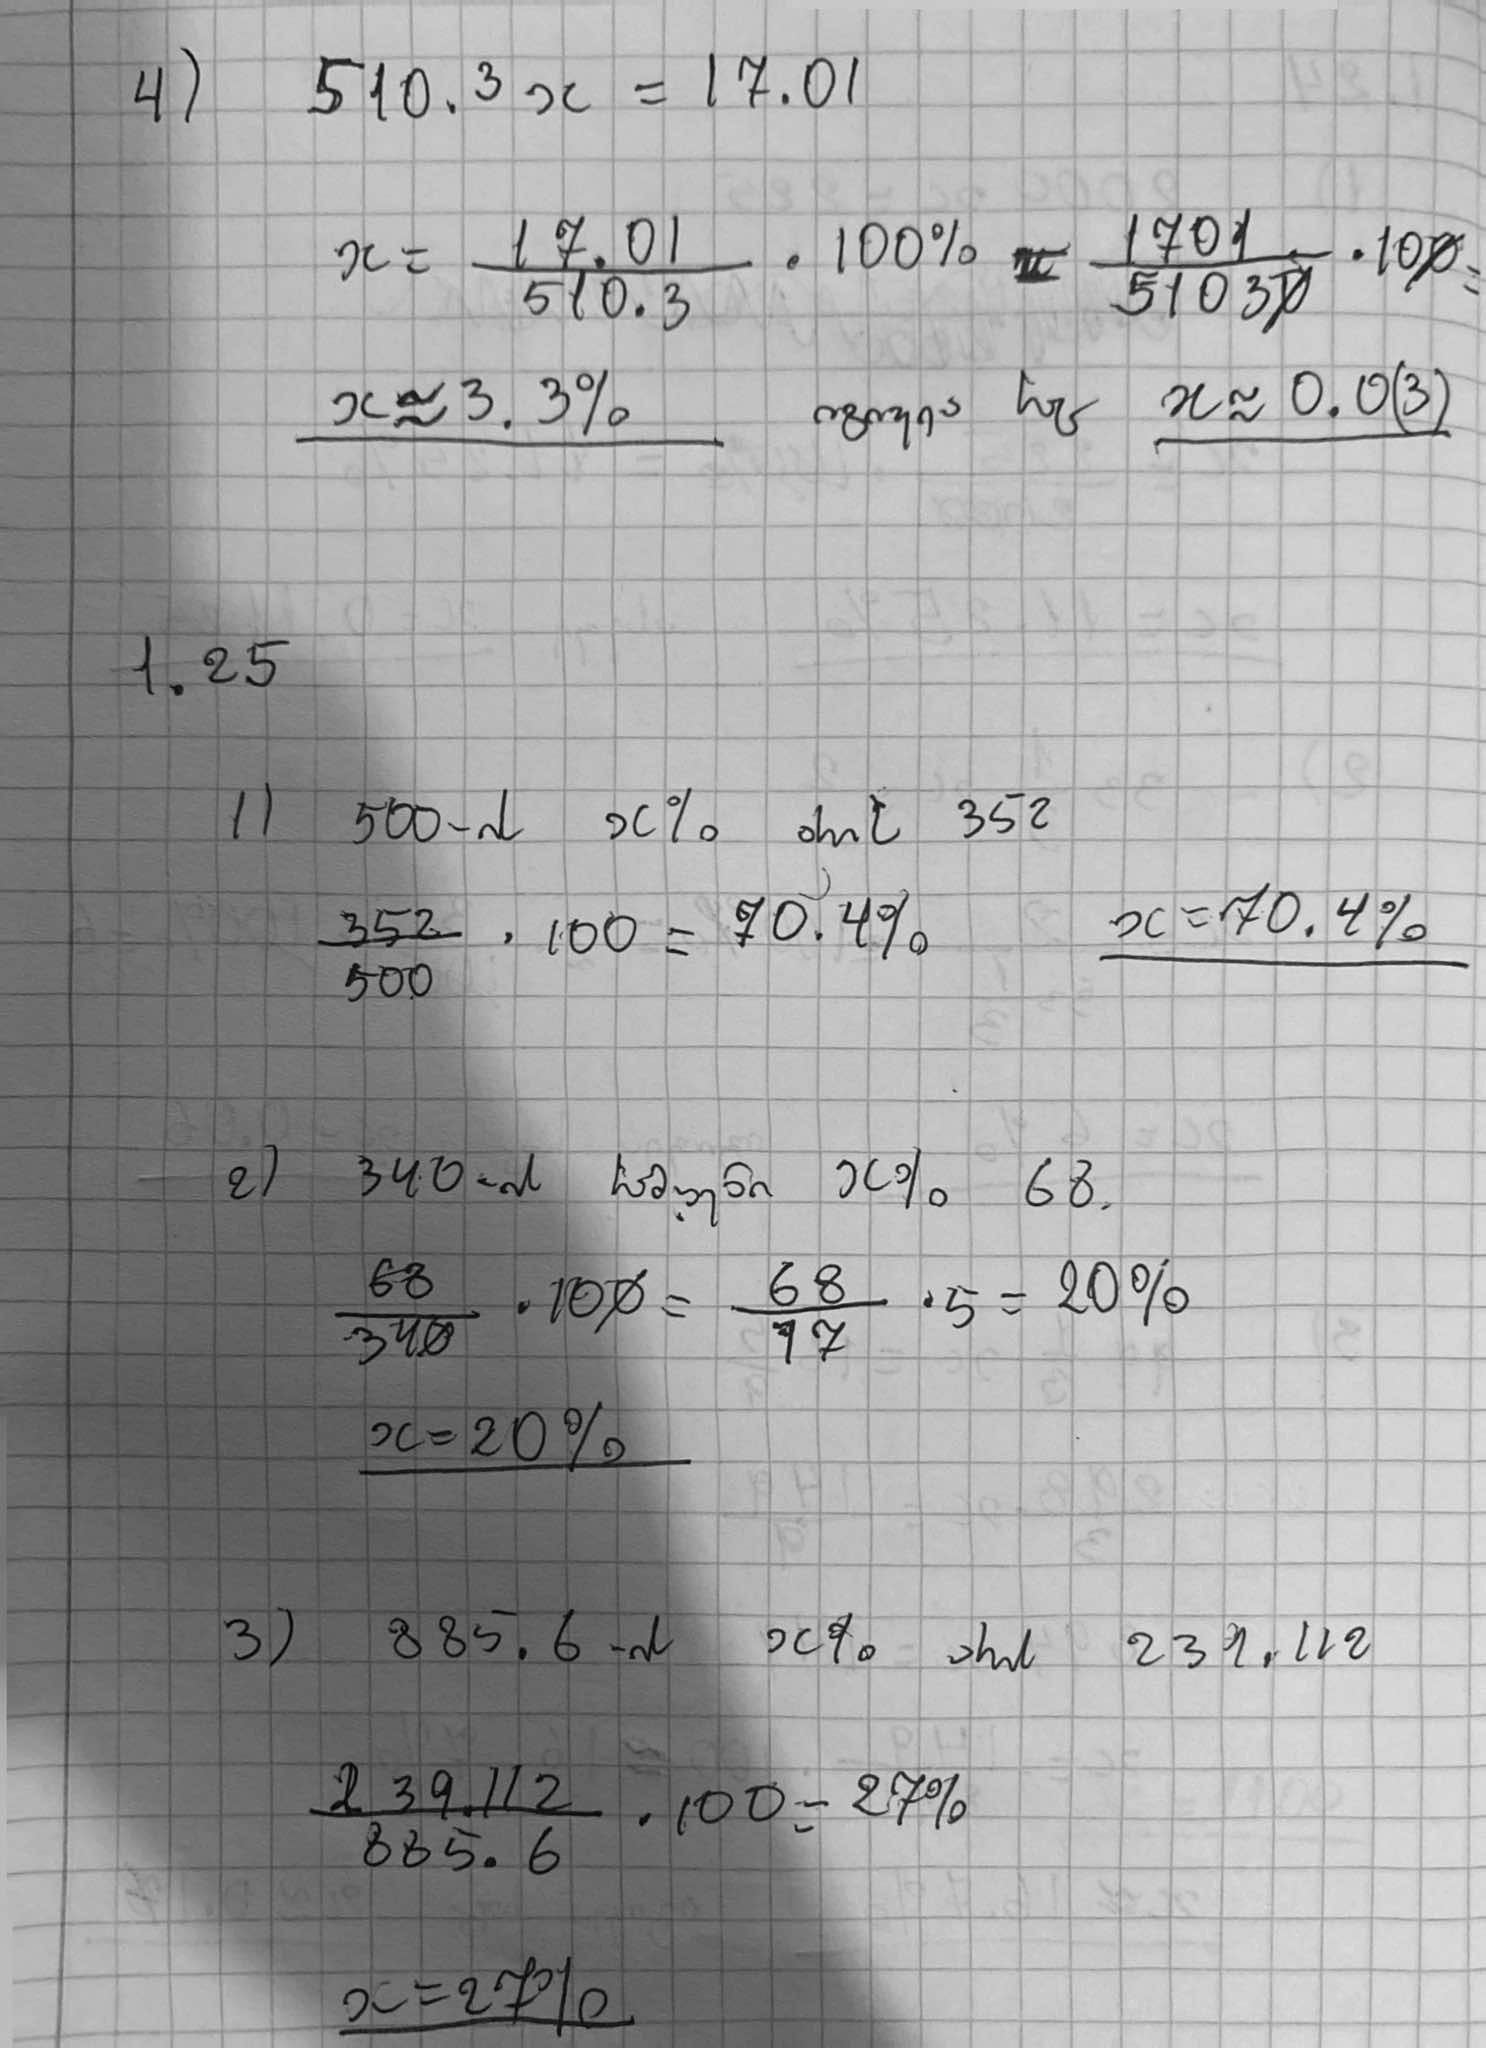 4) 510.3x = 17.01
x = 17.01/510.3 · 100% = 1701/51030 · 100 =
x ≈ 3.3% x ≈ 0.0(3)
1.25
1) 500-ის x% არის 352
352/500 · 100 = 70.4% x = 70.4%
2) 340-ის x% 68.
68/340 · 100 = 68/17 · 5 = 20%
x = 20%
3) 885.6-ის x% არის 239.112
239.112/885.6 · 100 = 27%
x = 27%